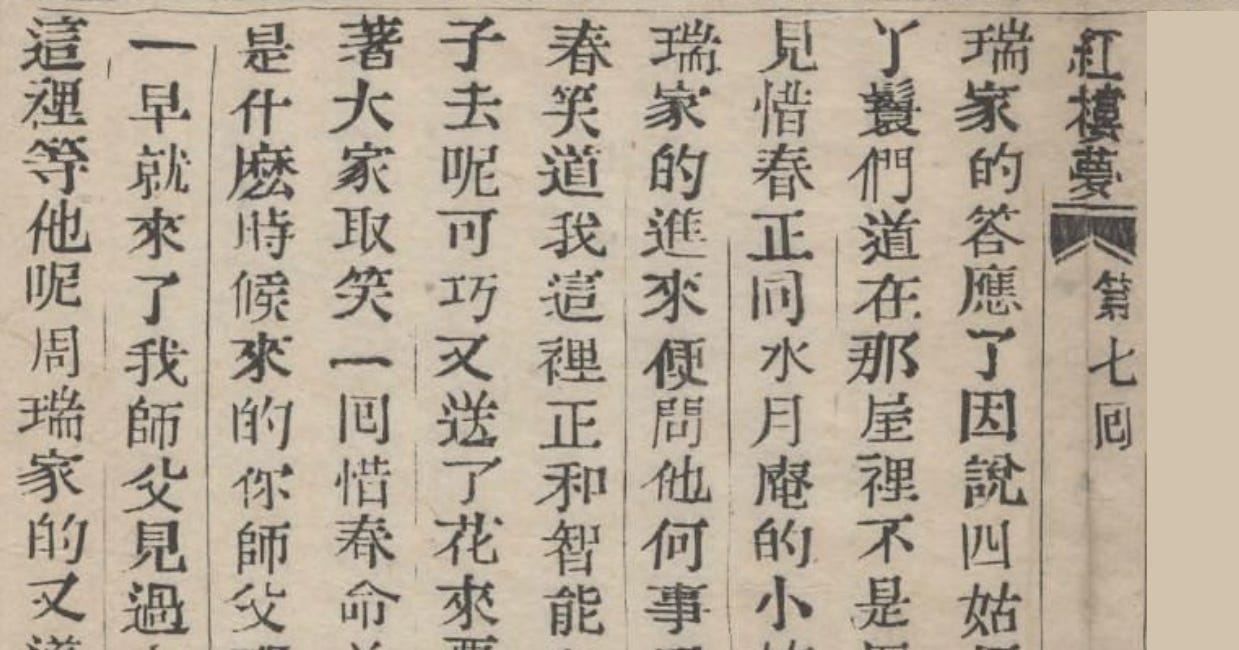 紅樓夢 第七囘
瑞家的答應了因說四姑
丫鬟們道在那屋裡不是
見惜春正同水月庵的小
瑞家的進來便問他何事
春笑道我這裡正和智能
子去呢可巧又送了花來
著大家取笑一囘惜春命
是什麽時候來的你師父
一早就來了我師父見過
這裡等他呢周瑞家的又